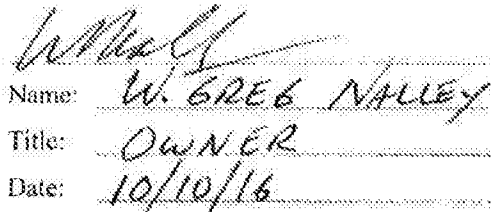 Name: W. GREG NALLEY
Title: OWNER
Date: 10/10/16